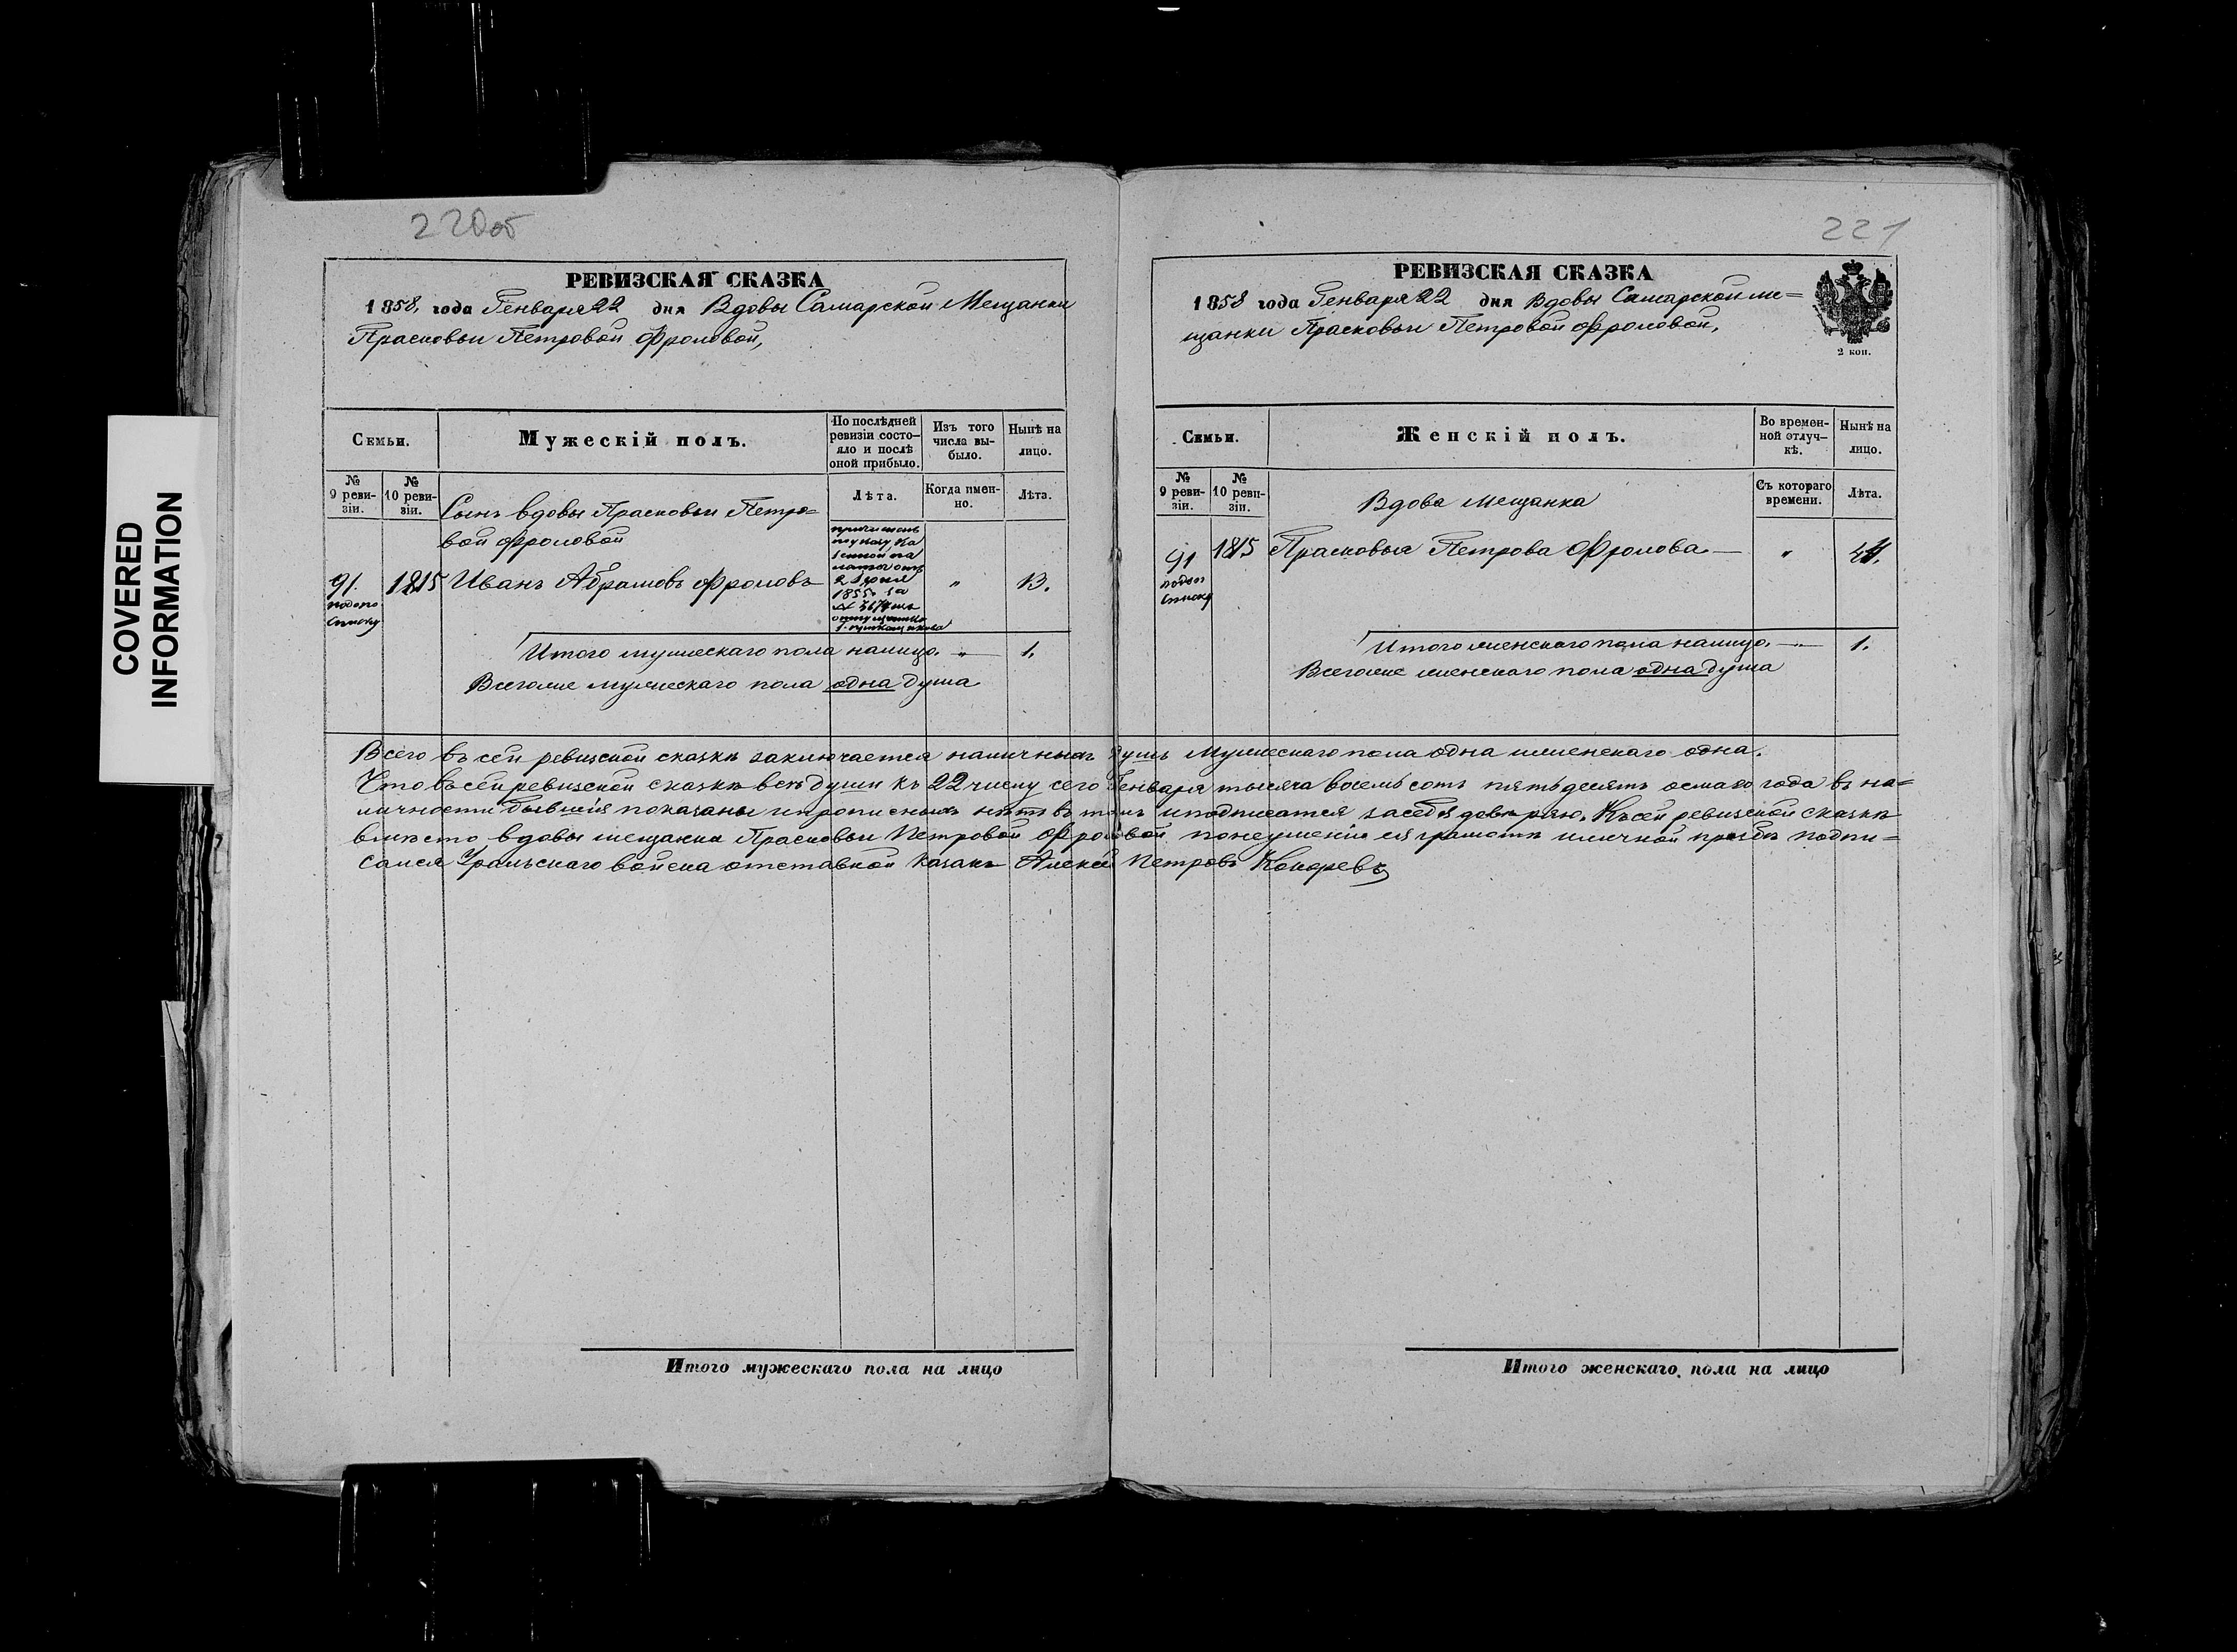 COVERED
INFORMATION
220об
РЕВИЗСКАЯ СКАЗКА
1858, года Генваря 22 дня Вдовы Самарской Мещанки
Прасковьи Петровой Фроловой,
Семьи.
Мужескій полъ.
По послѣдней
ревизіи состо-
яло и послѣ
оной прибыло.
Изъ того
числа вы-
было.
Нынѣ на
лицо.
№
9 реви-
зіи.
№
10 реви-
зіи.
Лѣта.
Когда имен-
но.
Лѣта.
Сынъ вдовы Прасковьи Петро=
вой Фроловой
91.
1815
Иванъ Абрамовъ Фроловъ
указу Ка
зенной па
латы отъ
1855 го
"
13.
Итого мужескаго пола налицо. " — 1.
Всегоже мужескаго пола одна душа
221
РЕВИЗСКАЯ СКАЗКА
1858 года Генваря 22 дня Вдовы Самарской ме=
щанки Прасковьи Петровой Фроловой,
2 коп.
Семьи.
Женскій полъ.
Во времен-
ной отлуч-
кѣ.
Нынѣ на
лицо.
№
9 реви-
зіи.
№
10 реви-
зіи.
Съ котораго
времени.
Лѣта.
Вдова мещанка
91
1815
Прасковья Петрова Фролова. —
"
Итого женскаго пола налицо. — 1.
Всегоже женскаго пола одна душа
Всего въ сей ревизской сказкѣ заключается наличныхъ душъ Мужескаго пола одна иженскаго одна.
Что всей ревизской сказкѣ всѣ души къ 22 числу сего Генваря тысяча восемьсотъ пятьдесятъ осмаго года въ на=
личности бывшія показаны ипрописныхъ нѣтъ въ томъ иподписатся довѣряю. Ксей ревизской сказкѣ
вмѣсто вдовы мещанки Прасковьи Петровой Фроловой понеумению ея грамотѣ иличной прозбѣ подпи=
сался Уральскаго войска отставной казакъ Алексей Петровъ
Итого мужескаго пола на лицо
Итого женскаго пола на лицо